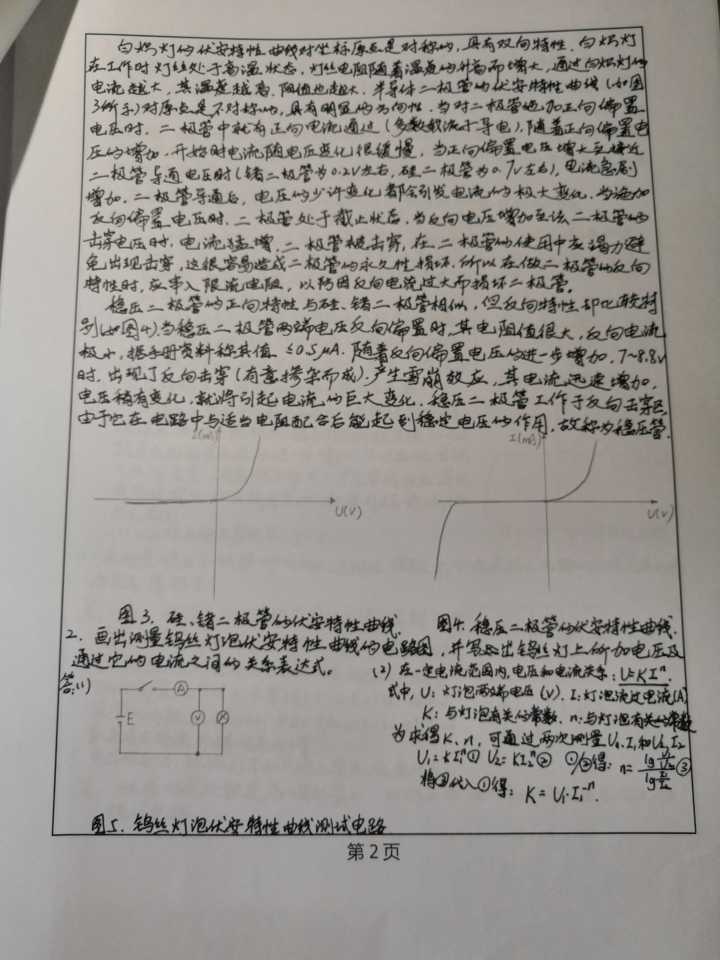 白炽灯的伏安特性曲线对坐标原点是对称的，具有双向特性。白炽灯
在工作时灯丝处于高温状态，灯丝电阻随着温度的升高而增大，通过白炽灯的
电流越大，其温度越高，阻值也越大。半导体二极管的伏安特性曲线（如图
3所示）对原点是不对称的，具有明显的方向性。当对二极管施加正向偏置
电压时，二极管中就有正向电流通过（多数载流子导电），随着正向偏置电
压的增加，开始时电流随电压变化很缓慢，当正向偏置电压增大至接近
二极管导通电压时（锗二极管为0.2V左右，硅二极管为0.7V左右），电流急剧
增加，二极管导通后，电压的少许变化都会引发电流的极大变化。当施加
反向偏置电压时，二极管处于截止状态，当反向电压增加至该二极管的
击穿电压时，电流猛增，二极管被击穿，在二极管的使用中应竭力避
免出现击穿，这很容易造成二极管的永久性损坏。所以在做二极管的反向
特性时，应串入限流电阻，以防因反向电流过大而损坏二极管。
稳压二极管的正向特性与硅、锗二极管相似，但反向特性却比较特
别（如图4）当稳压二极管两端电压反向偏置时，其电阻值很大，反向电流
极小，据手册资料称其值≤0.5μA。随着反向偏置电压的进一步增加，7~8.8V
时，出现了反向击穿（有意掺杂而成），产生雪崩效应，其电流迅速增加，
电压稍有变化，就将引起电流的巨大变化。稳压二极管工作于反向击穿区
由于它在电路中与适当电阻配合后能起到稳定电压的作用，故称为稳压管。
I(mA)
U(V)
I(mA)
U(V)
图3. 硅、锗二极管的伏安特性曲线.
图4. 稳压二极管的伏安特性曲线.
2. 画出测量钨丝灯泡伏安特性曲线的电路图，并写出钨丝灯上所加电压及
通过它的电流之间的关系表达式。
答：(1)
E
A
V
(2) 在一定电流范围内，电压和电流关系：U=KIⁿ.
式中，U：灯泡两端电压(V). I：灯泡流过电流(A)
K：与灯泡有关的常数. n：与灯泡有关的常数
为求得K、n，可通过两次测量U₁、I₁和U₂、I₂
U₁=KI₁ⁿ① U₂=KI₂ⁿ② ①/②得：n=lg(U₁/U₂)/lg(I₁/I₂)③
将③代入①得：K=U₁·I₁⁻ⁿ.
图5. 钨丝灯泡伏安特性曲线测试电路
第 2 页